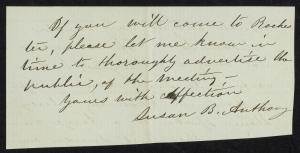 If you will come to Roches
ter, please let me know in
time to thoroughly advertise the
public, of the meeting —
Yours with affection
Susan B. Anthony